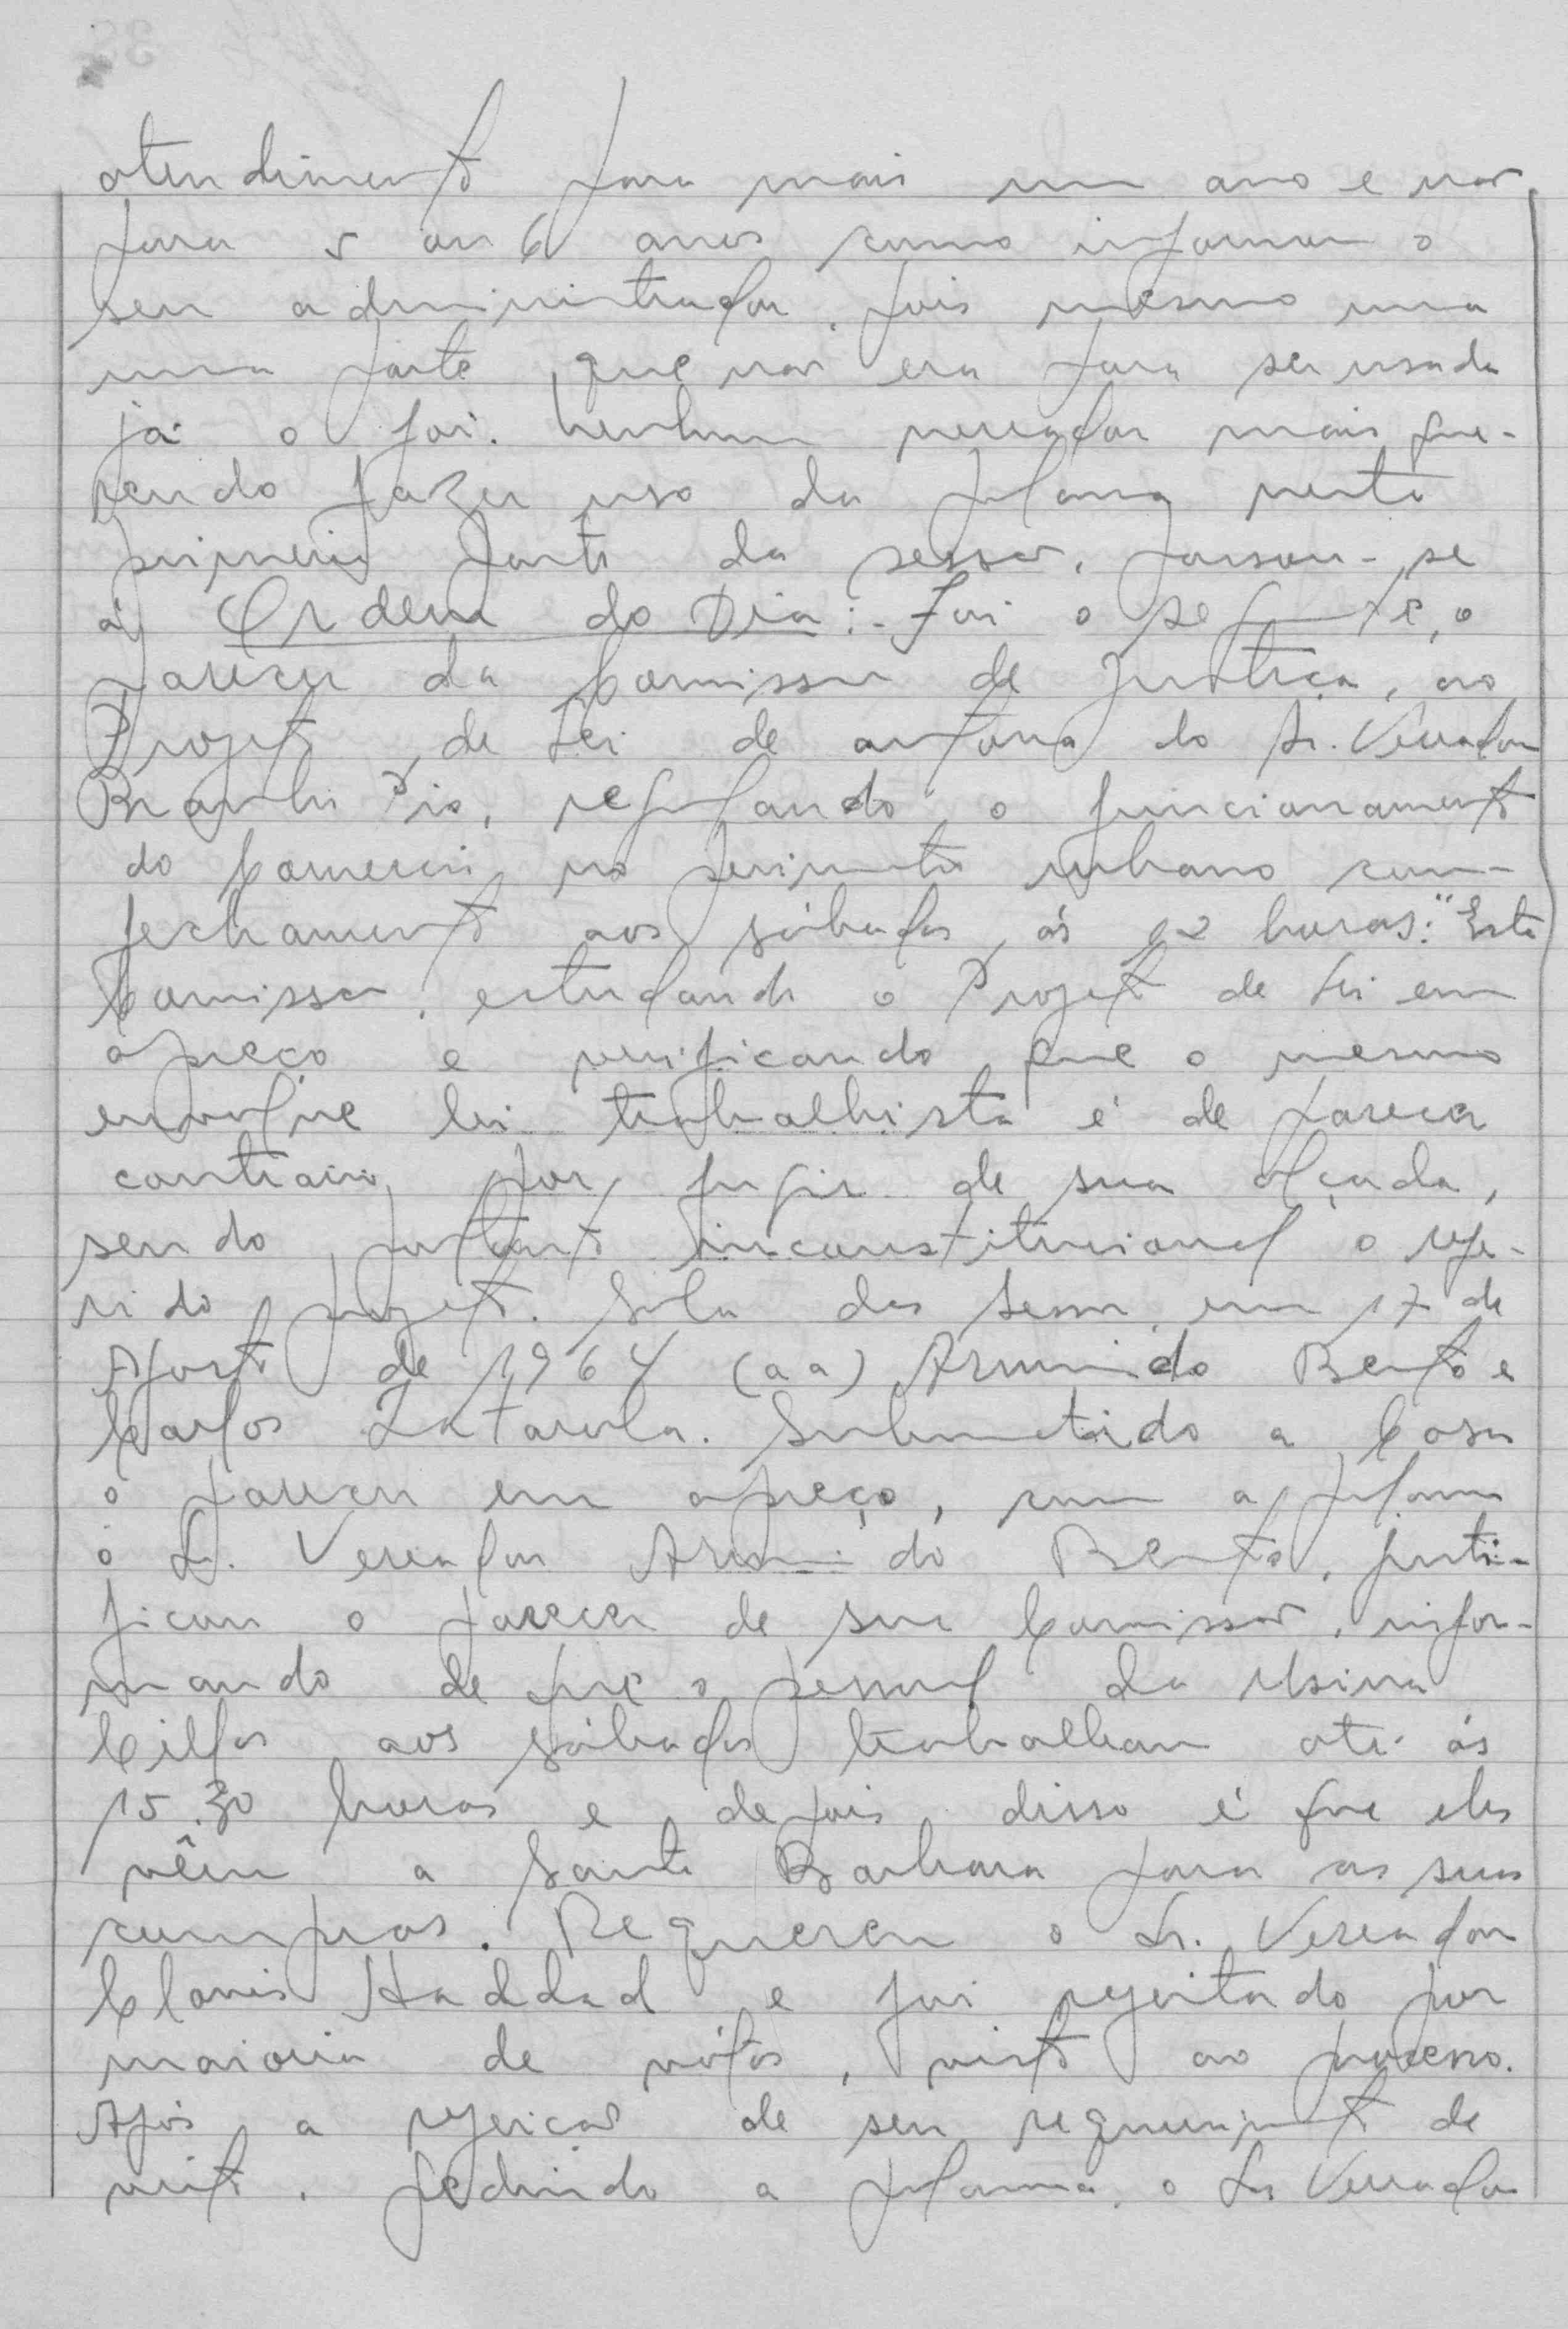 atendimento para mais um ano e não
para 5 ou 6 anos como informou o
seu administrador, pois mesmo uma
uma parte, que não era para ser usada
já o foi. Nenhum vereador mais que-
rendo fazer uso da palavra nesta
primeira parte da sessão, passou-se
à Ordem do Dia:- Foi o seguinte, o
parecer da Comissão de Justiça, ao
Projeto de Lei de autoria do Sr. Vereador
Braulio Pio, regulando o funcionamento
do Comercio no perimetro urbano com
fechamento aos sábados às 12 horas: "Esta
Comissão, estudando o Projeto de Lei em
apreço e verificando que o mesmo
envolve lei trabalhista é de parecer
contrario, por fugir de sua alçada,
sendo portanto inconstitucional o refe-
rido projeto. Sala das Sessões, em 17 de
Agosto de 1964 (aa) Armindo Bento e
Carlos Zatarola. Submetido a Casa
o parecer em apreço, com a palavra
o Sr. Vereador Armindo Bento, justi-
ficou o parecer de sua Comissão, infor-
mando de que o pessoal da Usina
Cillos aos sábados trabalham até às
15.30 horas e depois disso é que eles
vêm a Santa Barbara para as suas
compras. Requereu o Sr. Vereador
Clovis Haddad e foi rejeitado por
maioria de vótos, vista ao processo.
Após a rejeição de seu requerimento de
vista, pedindo a palavra, o Sr Vereador